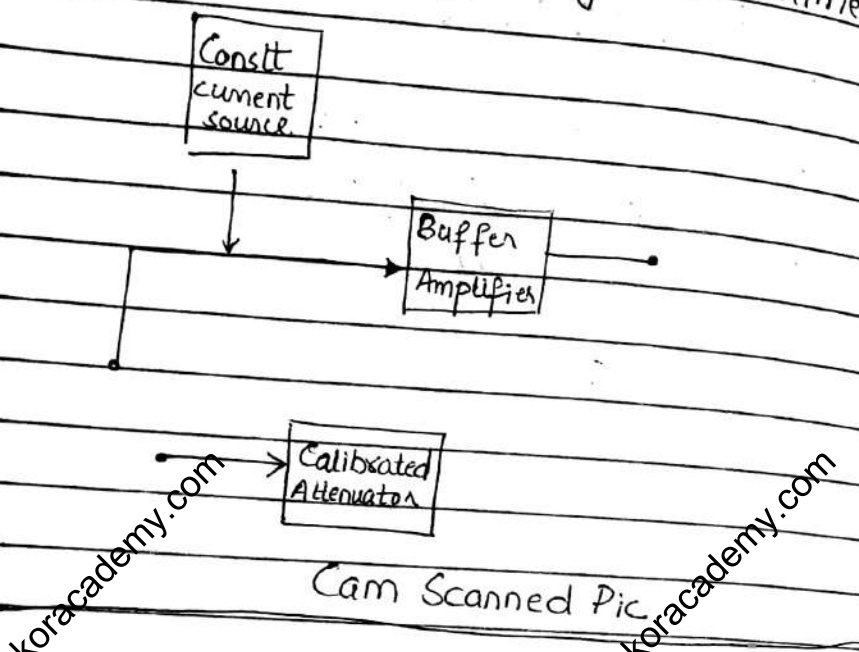 Constt
current
source
Buffer
Amplifier
Calibrated
Attenuator
Cam Scanned Pic
koracademy.com
koracademy.com